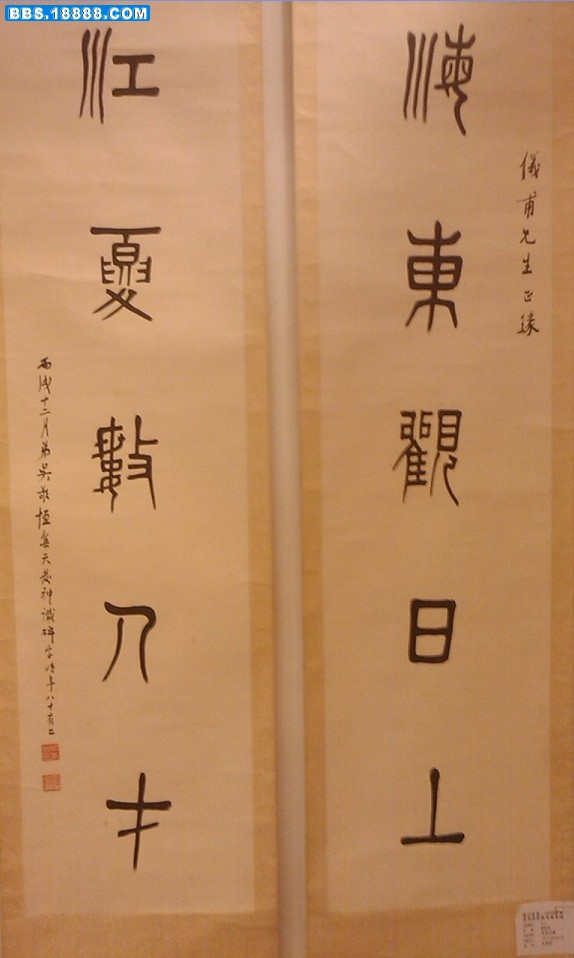 BBS.18888.COM
儀甫先生正緣
海東觀日上
江夏數人才
丙戌十二月弟吳敬恆集天發神讖碑字時年八十有二